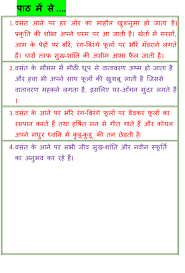 पाठ में से ....
1.वसंत आने पर हर ओर का माहौल खुशनुमा हो जाता है।
प्रकृति की शोभा अपने चरम पर आ जाती है। खेतों में सरसों,
आम के पेड़ों पर बौरें, रंग-बिरंगे फूलों पर भौंरे मुंडराने लगते
हैं। चारों तरफ सुख-शांति की असीम आभा फैल जाती है।
2.वसंत के मौसम में मीठी धूप से वातावरण ऊष्म हो जाता है
और हवा भी अपने साथ फूलों की खुशबू लाती है जिससे
वातावरण महकने लगता है, इसलिए घर-आँगन सुंदर लगते हैं
।
3.वसंत के आने पर भौंरे रंग-बिरंगे फूलों पर बैठकर फूलों का
रसपान करते हैं तथा हर्षित मन से गीत गाते हैं और कोयल
अपने मधुर ध्वनि में कुहू-कुहू की तान छेड़ती है।
4.वसंत के आने पर सभी जीव सुख-शांति और नवीन स्फूर्ति
का अनुभव कर रहे हैं।